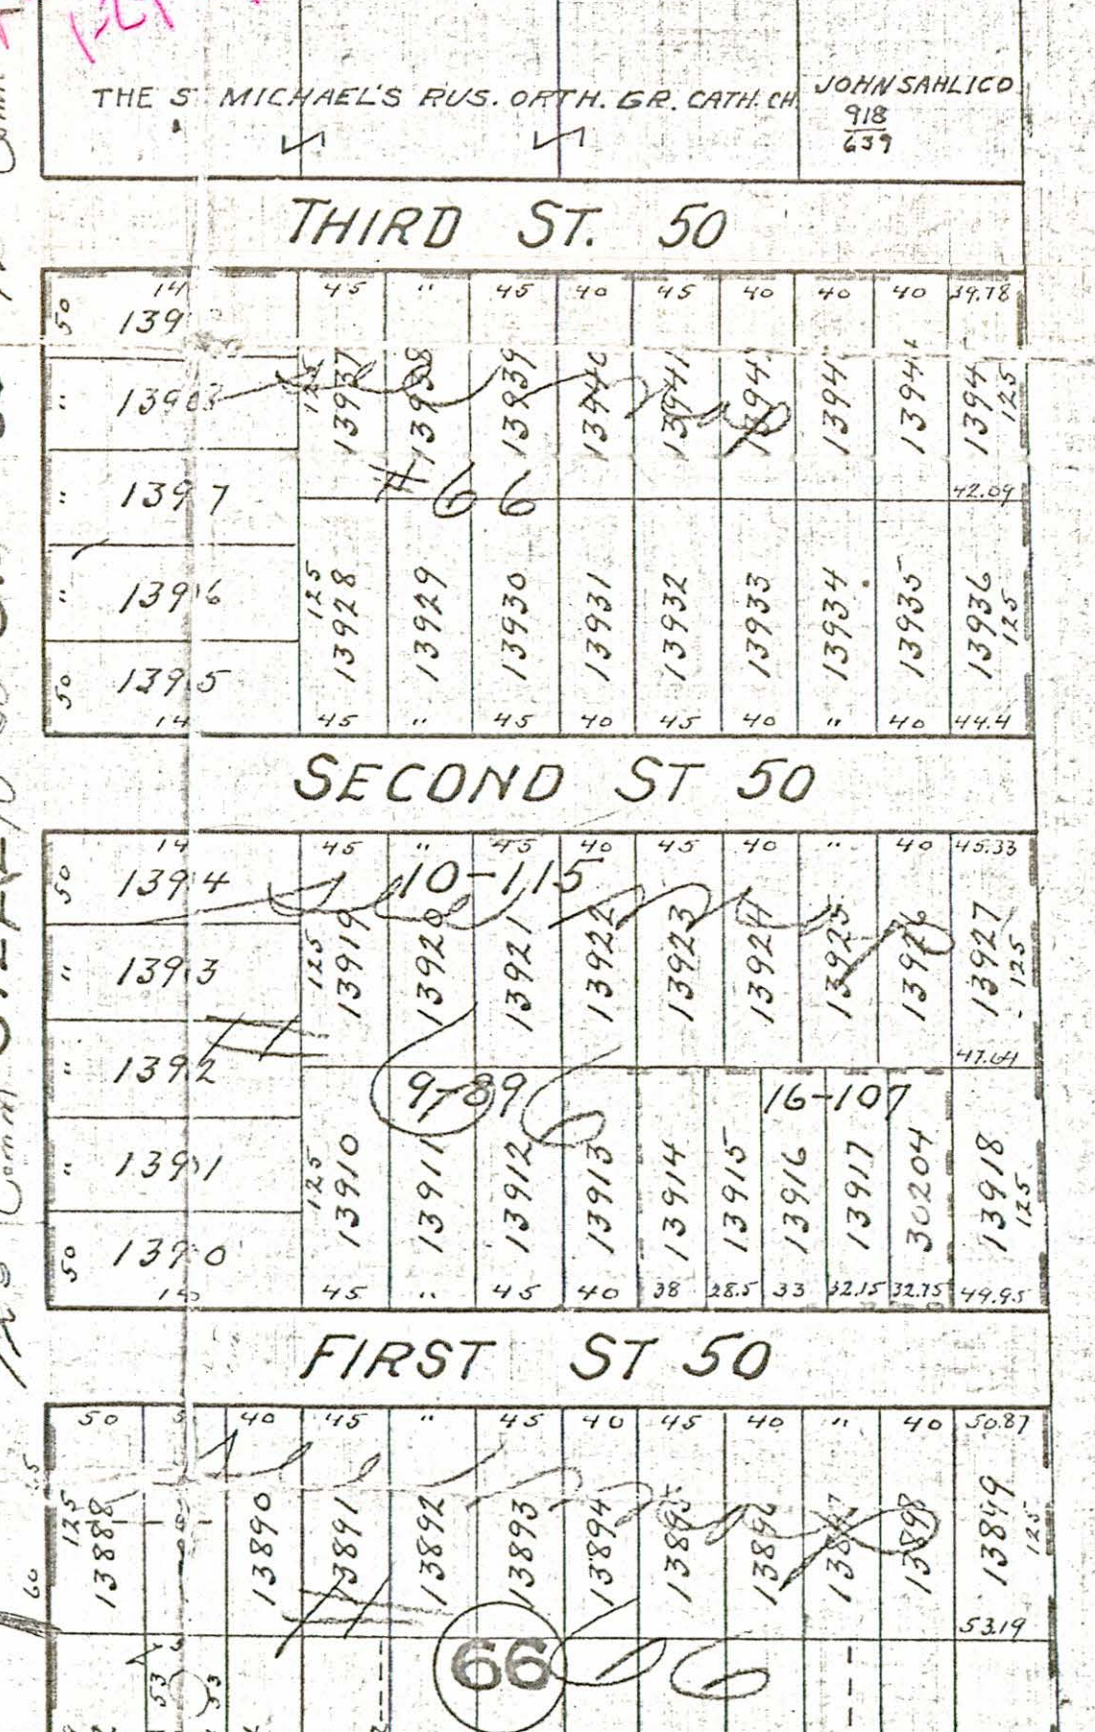 THE S MICHAEL'S RUS. ORTH. GR. CATH. CH.
JOHN SAHLICO
918
639
THIRD ST. 50
14 45 " 45 40 45 40 40 40 39.78
50 139
" 139 3
125 13937 13938 13939 13940 13941 1394 1394 1394 1394 125
see map
#66
42.09
" 139 7
" 139 6
50 139 5
125 13928 13929 13930 13931 13932 13933 13934 13935 13936 125
14 45 " 45 40 45 40 " 40 44.4
SECOND ST 50
14 45 " 45 40 45 40 " 40 45.33
50 139 4
10-115
see map
" 139 3
125 13919 13920 13921 13922 13923 13924 13925 13926 13927 125
# 66
47.64
" 139 2
9-89
16-107
" 139 1
50 139 0
125 13910 13911 13912 13913 13914 13915 13916 13917 30204 13918 125
45 " 45 40 38 28.5 33 32.15 32.75 49.95
FIRST ST 50
50 5 40 45 " 45 40 45 40 " 40 50.87
see map
125 13888 13890 13891 13892 13893 13894 13895 13896 13897 13898 13899 125
60
# 66
53.19
66
53
53